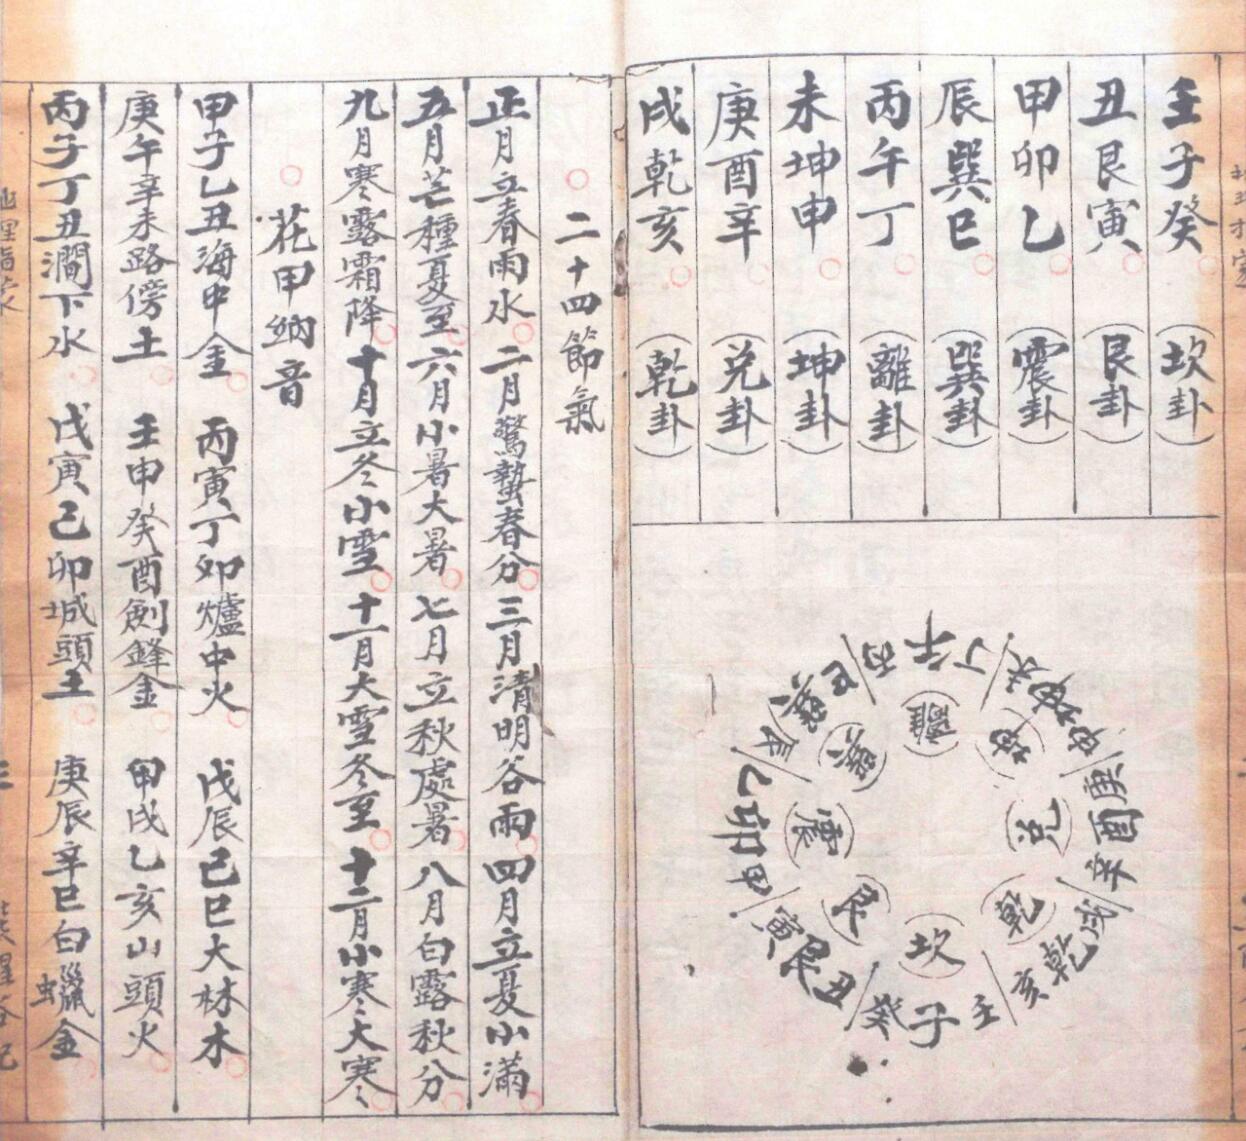 壬子癸 (坎卦)
丑艮寅 (艮卦)
甲卯乙 (震卦)
辰巽巳 (巽卦)
丙午丁 (離卦)
未坤申 (坤卦)
庚酉辛 (兑卦)
戌乾亥 (乾卦)
丙午丁
未坤申
庚酉辛
戌乾亥
壬子癸
丑艮寅
甲卯乙
辰巽巳
(離)
(坤)
(兑)
(乾)
(坎)
(艮)
(震)
(巽)
○二十四節氣
正月立春雨水○二月驚蟄春分○三月清明谷雨○四月立夏小滿○
五月芒種夏至○六月小暑大暑○七月立秋處暑○八月白露秋分○
九月寒露霜降○十月立冬小雪○十一月大雪冬至○十二月小寒大寒○
○花甲納音
甲子乙丑海中金○丙寅丁卯爐中火○戊辰己巳大林木○
庚午辛未路傍土○壬申癸酉劍鋒金○甲戌乙亥山頭火○
丙子丁丑澗下水○戊寅己卯城頭土○庚辰辛巳白蠟金○